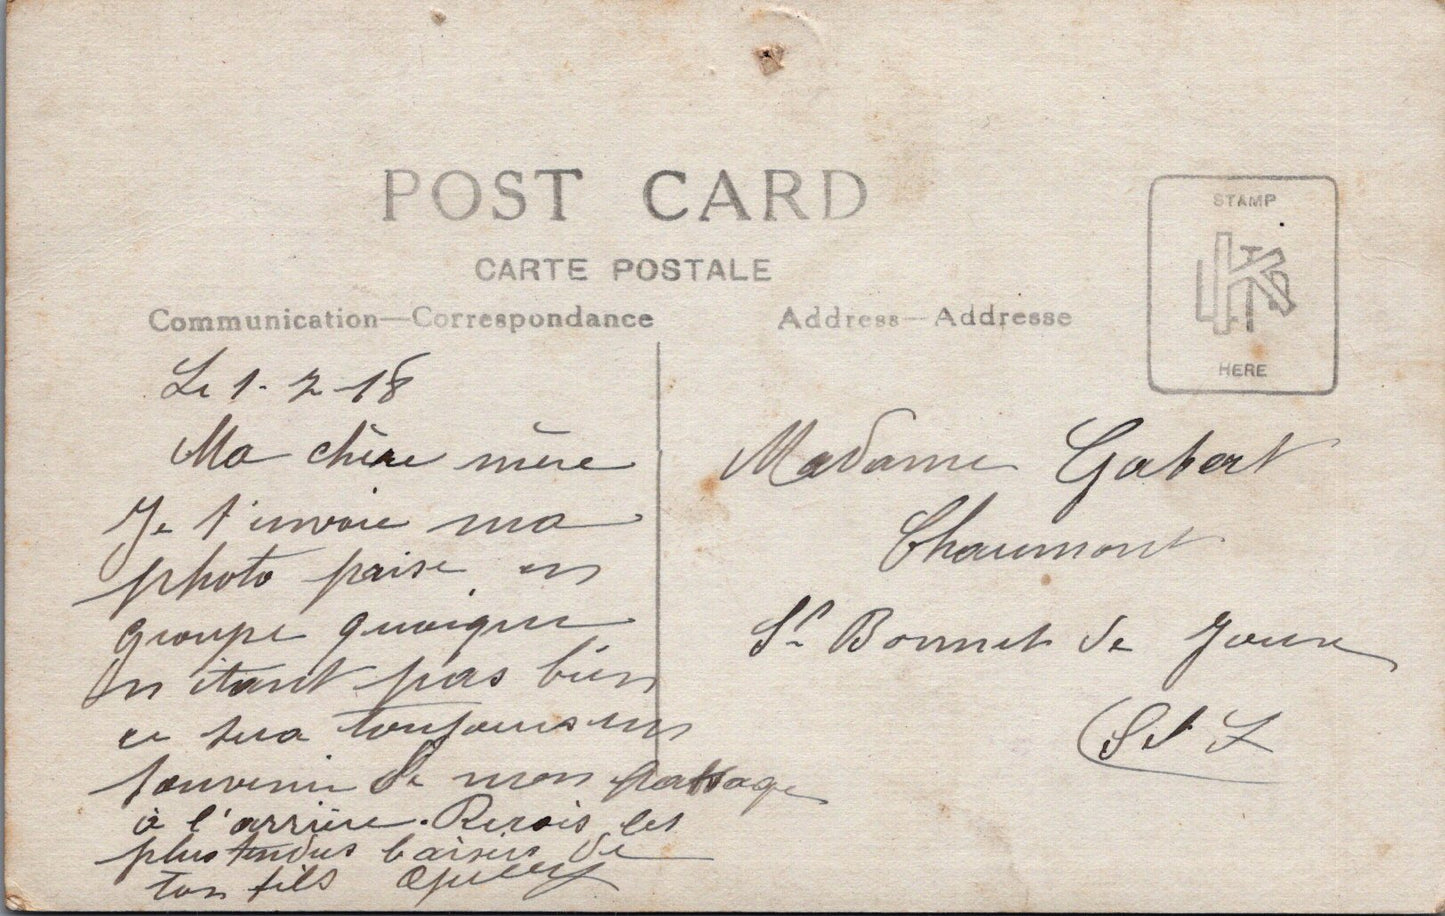 POST CARD
CARTE POSTALE
Communication—Correspondance
Address—Addresse
STAMP
HERE
Le 1-2-18
Ma chère mère
Je t'envoie ma
photo prise en
groupe quoique
n'etant pas bien
ce sera toujours un
souvenir de mon passage
à l'arrière. Recois les
plus tendres baisers de
ton fils
Madame Gabert
Chaumont
St Bonnet de Joux
(S et L